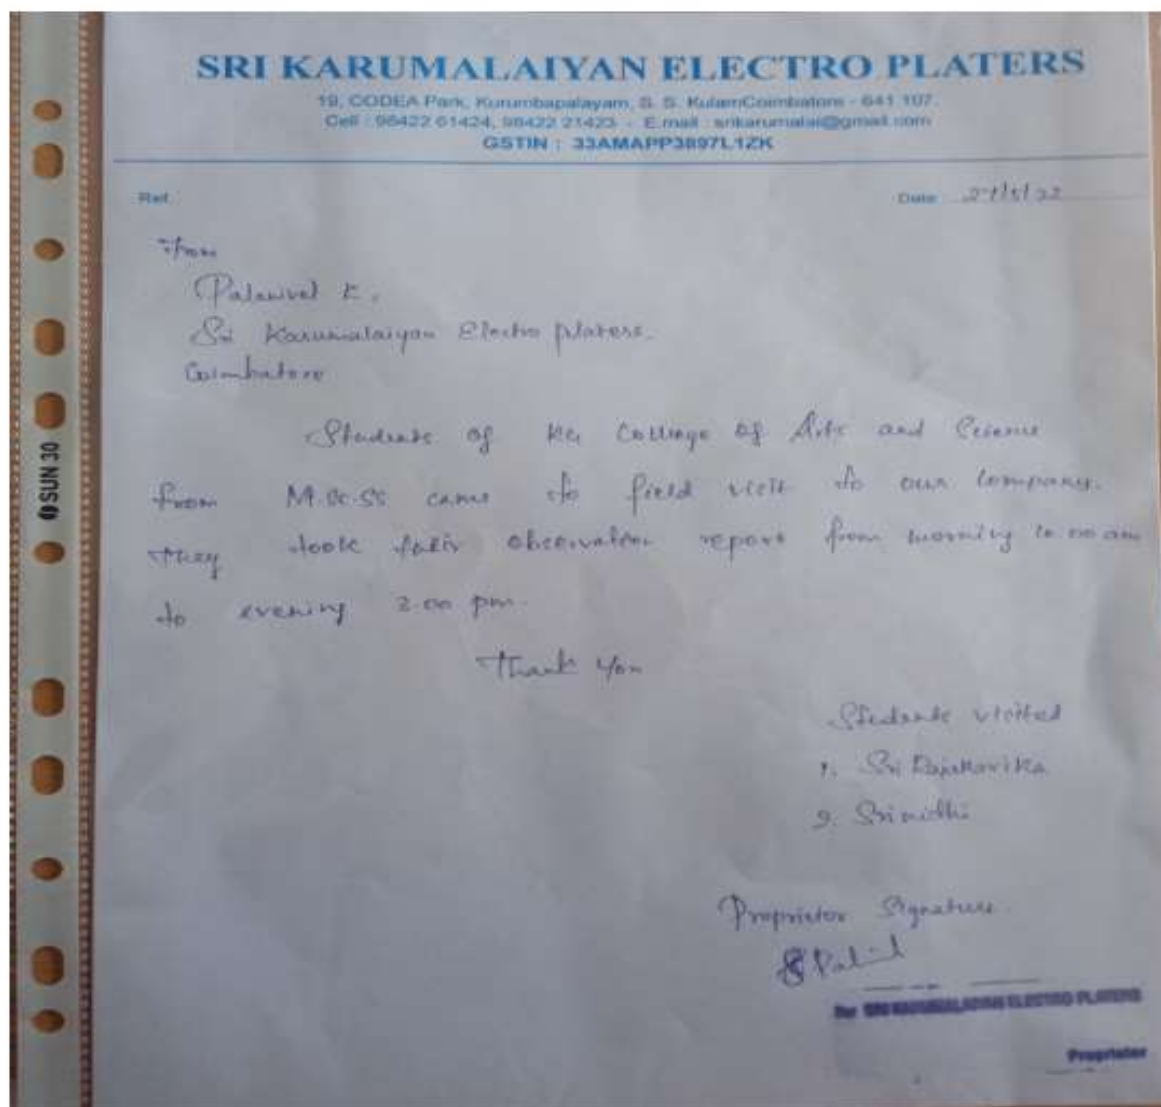 SRI KARUMALAIYAN ELECTRO PLATERS
19, CODEA Park, Kurumbapalayam, S. S. KulamCoimbatore - 641 107.
Cell : 98422 61424, 98422 21423 - E.mail : srikarumalai@gmail.com
GSTIN : 33AMAPP3897L1ZK
Ref. Date 27/5/22
From
Palanivel K.
Sri Karumalaiyan Electro platers.
Coimbatore
Students of KG College of Arts and Science
from M.Sc.SS came to field visit to our company.
they took their observation report from morning 10.00 am
to evening 2.00 pm.
Thank You
Students visited
1. Sri
2. Srinidhi
Proprietor Signature.
For SRI KARUMALAIYAN ELECTRO PLATERS
Proprietor
SUN 30